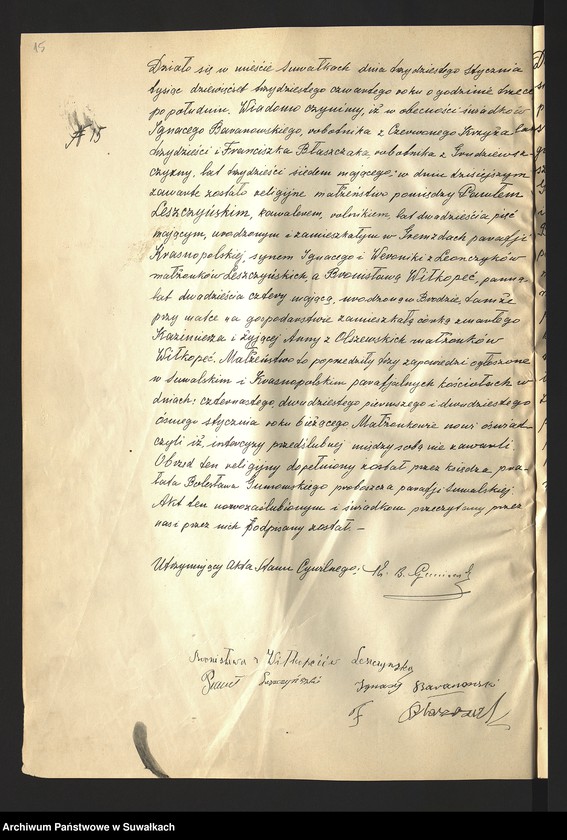 15
№ 15
Działo się w mieście Suwałkach dnia trzydziestego stycznia
tysiąc dziewięćset trzydziestego czwartego roku o godzinie trzeciej
po południu. Wiadomo czynimy, iż w obecności świadków
Ignacego Baranowskiego, robotnika z Czerwonego Krzyża lat
trzydzieści i Franciszka Błaszczaka, robotnika z
lat trzydzieści siedem mającego; w dniu dzisiejszym
zawarte zostało religijne małżeństwo pomiędzy Pawłem
Leszczyńskim, kawalerem, rolnikiem, lat dwadzieścia pięć
mającym, urodzonym i zamieszkałym w Gremzdach parafji
Krasnopolskiej, synem Ignacego i Weroniki z Leonczyków
małżonków Leszczyńskich, a Bronisławą Witkopeć, panną
lat dwadzieścia cztery mającą, urodzoną w tamże
przy matce na gospodarstwie zamieszkałą córką zmarłego
Kazimierza i żyjącej Anny z Olszewskich małżonków
Witkopeć. Małżeństwo to poprzedziły trzy zapowiedzi ogłoszone
w Suwalskim i Krasnopolskim parafjalnych kościołach w
dniach: czternastego, dwudziestego pierwszego i dwudziestego
ósmego stycznia roku bieżącego Małżonkowie nowi oświad-
czyli iż, intercyzy przedślubnej między sobą nie zawarli.
Obrzęd ten religijny dopełniony został przez księdza pra-
łata Bolesława Gumowskiego proboszcza parafji Suwalskiej.
Akt ten nowozaślubionym i świadkom przeczytany przez
nas i przez nich podpisany został. —
Utrzymujący Akta Stanu Cywilnego: Ks. B.
Bronisława z Leszczyńska
Paweł Leszczyński
Ignacy Baranowski
Archiwum Państwowe w Suwałkach